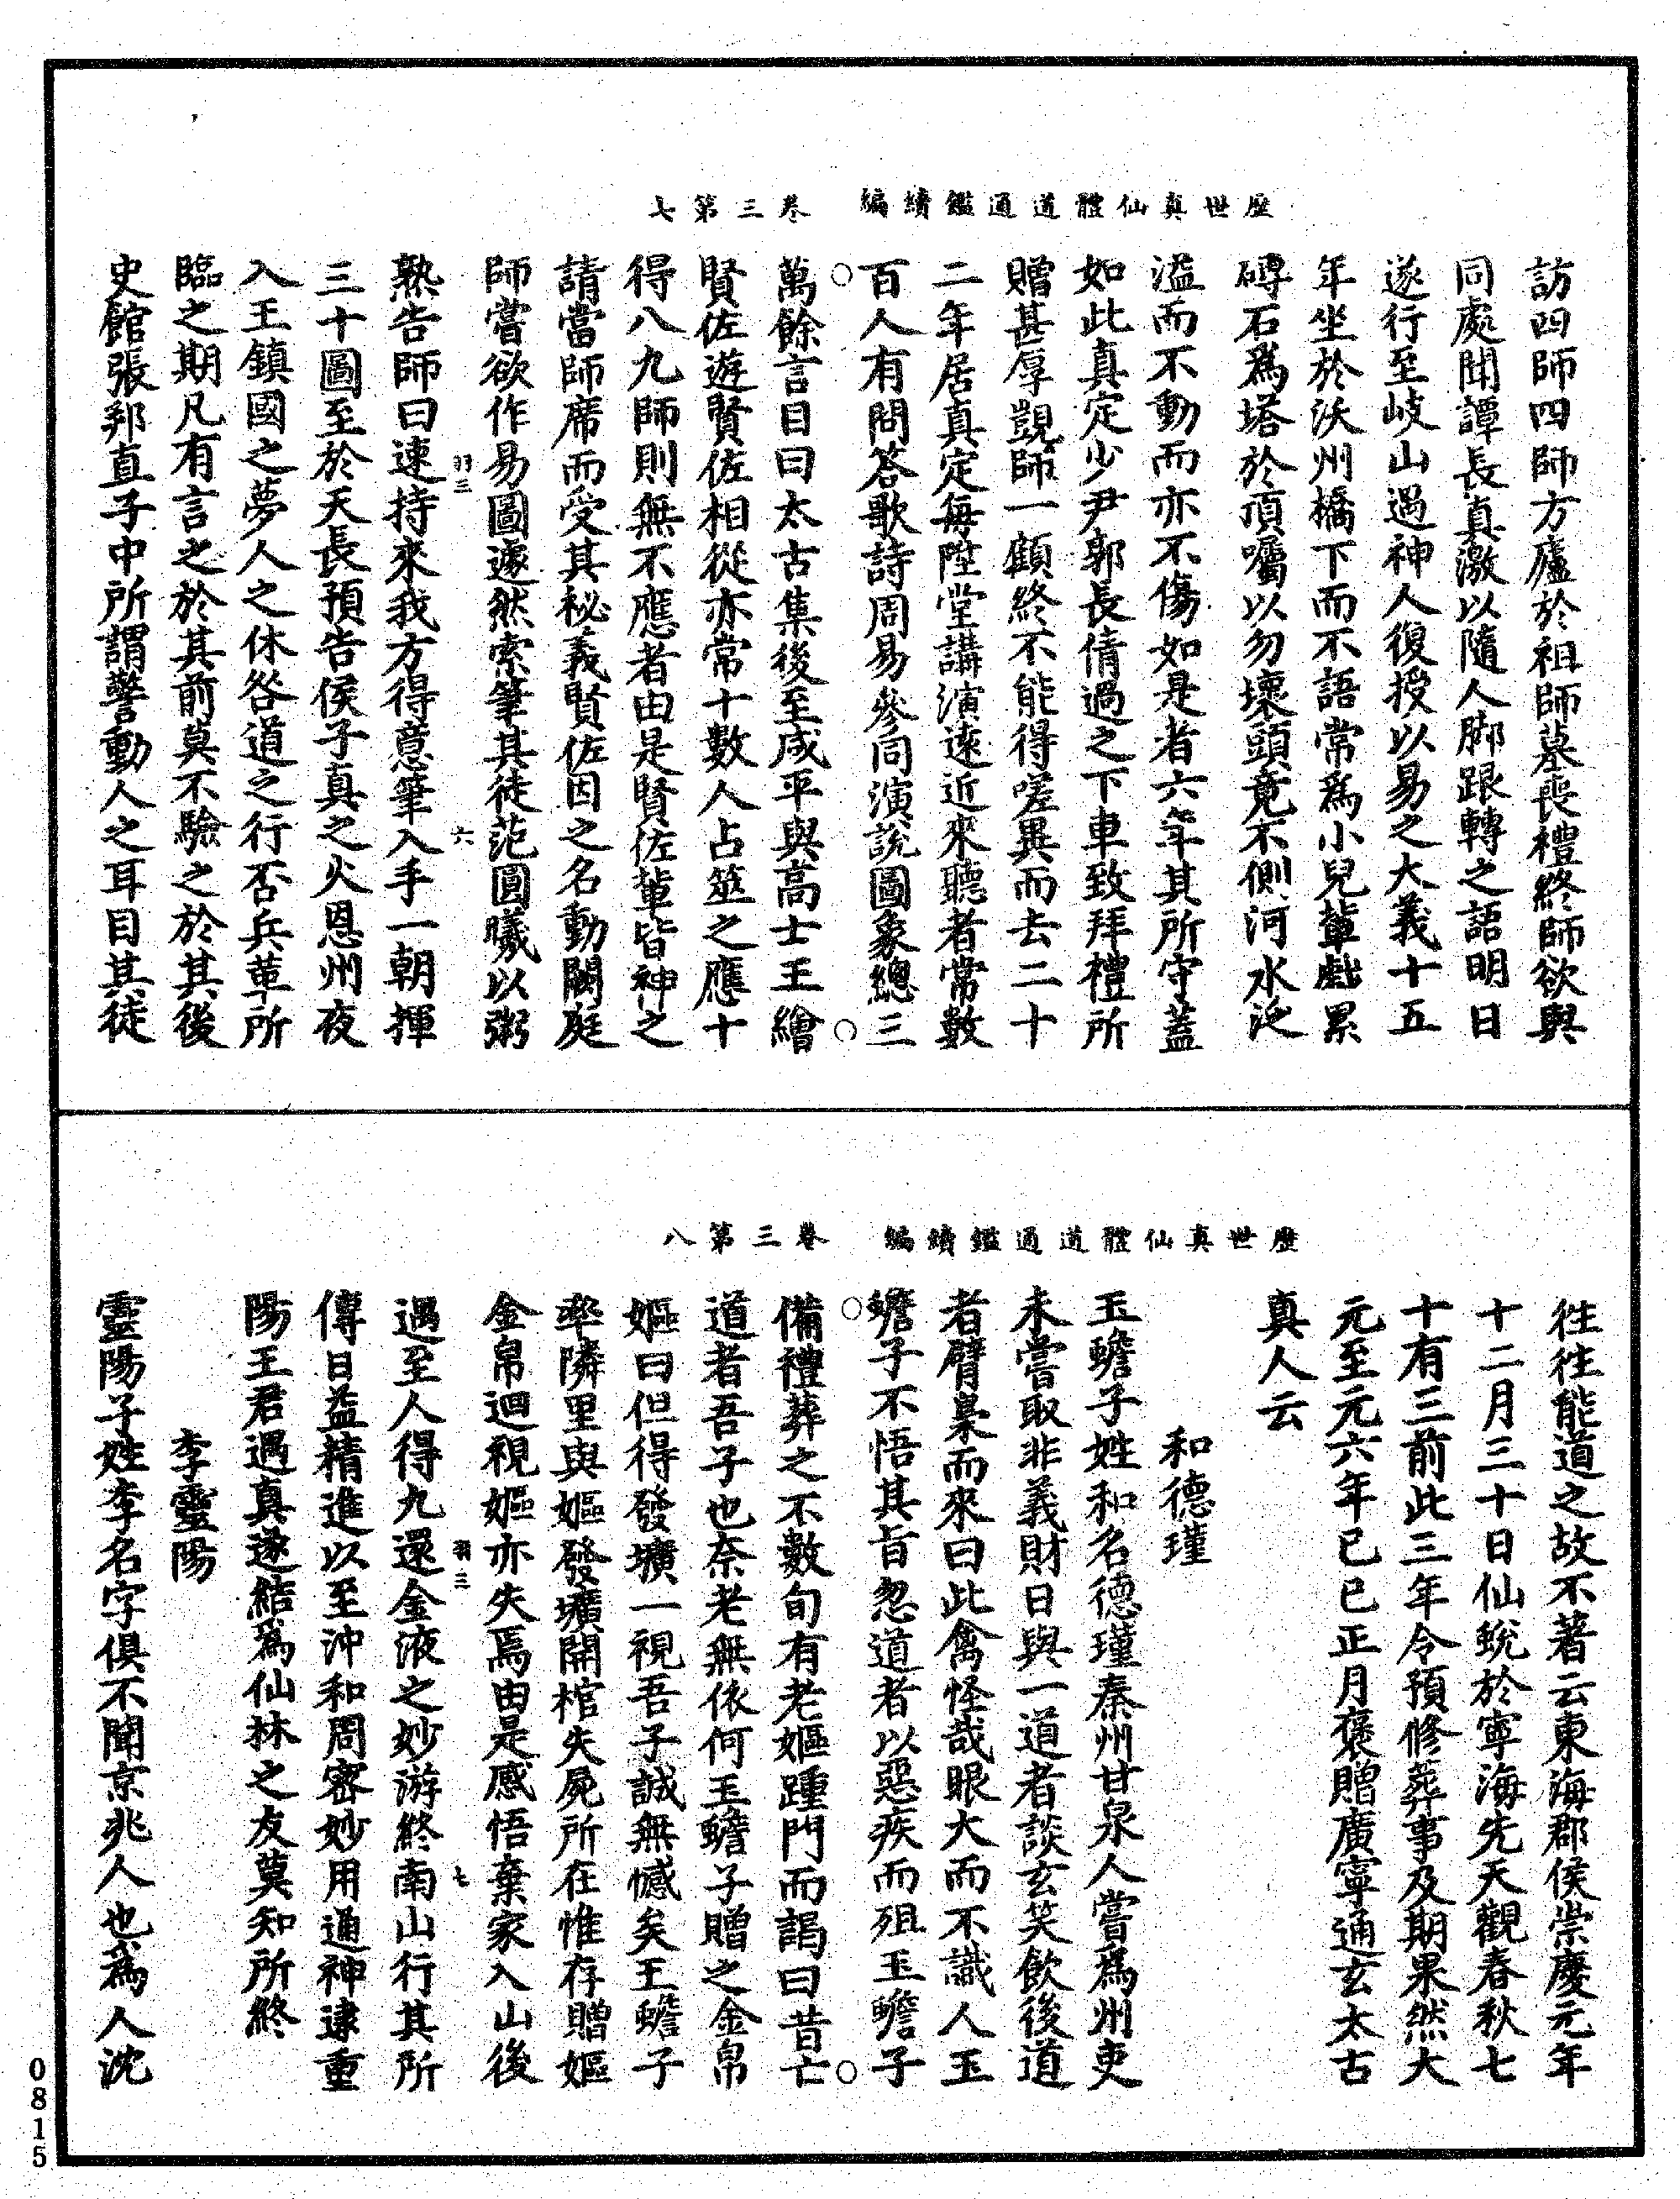 歷世真仙體道通鑑續編　卷三第七
訪四師四師方廬於祖師墓喪禮終師欲與
同處聞譚長真激以隨人脚跟轉之語明日
遂行至岐山遇神人復授以易之大義十五
年坐於沃州橋下而不語常爲小兒輩戲累
磚石爲塔於頂囑以勿壞頭竟不側河水泛
溢而不動而亦不傷如是者六年其所守蓋
如此真定少尹郭長倩過之下車致拜禮所
贈甚厚覬師一顧終不能得嗟異而去二十
二年居真定每陞堂講演遠近來聽者常數
百人有問答歌詩周易參同演說圖象總三
萬餘言目曰太古集後至咸平與高士王繪
賢佐遊賢佐相從亦常十數人占筮之應十
得八九師則無不應者由是賢佐輩皆神之
請當師席而受其秘義賢佐因之名動闕庭
師嘗欲作易圖遽然索筆其徒范圓曦以粥
羽三　六
熟告師曰速持來我方得意筆入手一朝揮
三十圖至於天長預告侯子真之火恩州夜
入王鎮國之夢人之休咎道之行否兵革所
臨之期凡有言之於其前莫不驗之於其後
史館張邦直子中所謂警動人之耳目其徒
歷世真仙體道通鑑續編　卷三第八
往往能道之故不著云東海郡侯崇慶元年
十二月三十日仙蛻於寧海先天觀春秋七
十有三前此三年令預修葬事及期果然大
元至元六年已巳正月褒贈廣寧通玄太古
真人云
和德瑾
玉蟾子姓和名德瑾秦州甘泉人嘗爲州吏
未嘗取非義財日與一道者談玄笑飲後道
者臂梟而來曰此禽怪哉眼大而不識人玉
蟾子不悟其旨忽道者以惡疾而殂玉蟾子
備禮葬之不數旬有老嫗踵門而謁曰昔亡
道者吾子也奈老無依何玉蟾子贈之金帛
嫗曰但得發壙一視吾子誠無憾矣王蟾子
率隣里與嫗發壙開棺失屍所在惟存贈嫗
金帛迴視嫗亦失焉由是感悟棄家入山後
羽三　七
遇至人得九還金液之妙游終南山行其所
傳日益精進以至沖和周密妙用通神逮重
陽王君遇真遂結爲仙林之友莫知所終
李靈陽
靈陽子姓李名字俱不聞京兆人也爲人沈
0815